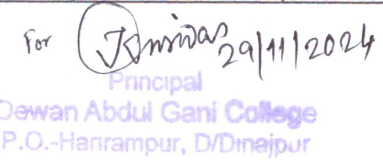 For
29/11/2024
Principal
Dewan Abdul Gani College
P.O.-Harirampur, D/Dinajpur